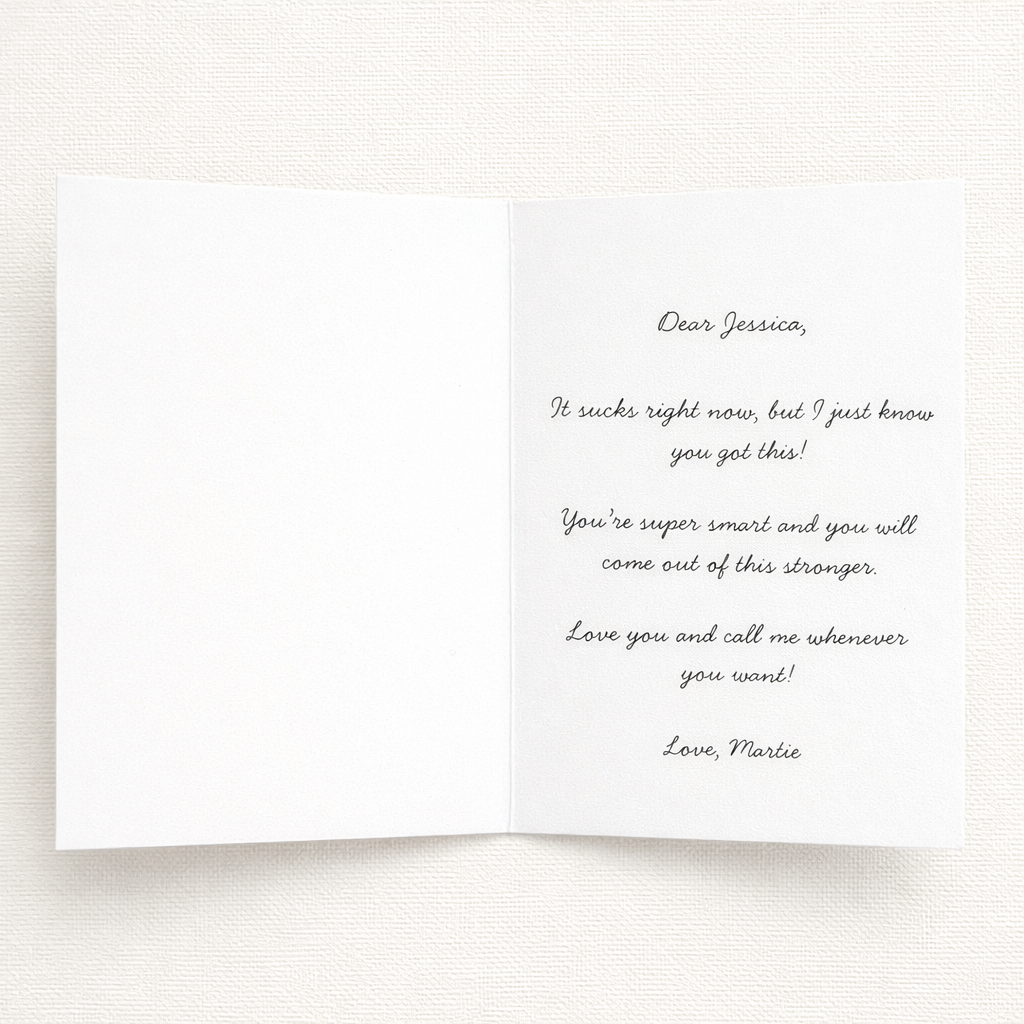 Dear Jessica,
It sucks right now, but I just know
you got this!
You're super smart and you will
come out of this stronger.
Love you and call me whenever
you want!
Love, Martie